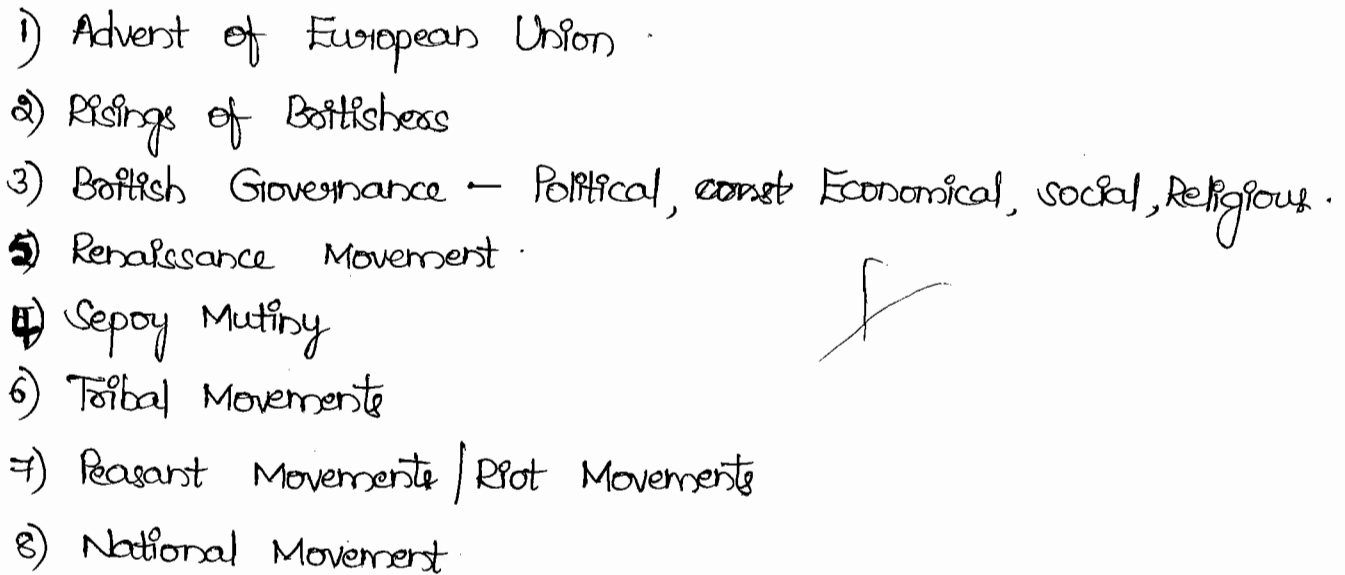 1) Advent of European Union.
2) Risings of Britishers
3) British Governance - Political, const Economical, social, Religious.
5) Renaissance Movement.
4) Sepoy Mutiny
6) Tribal Movements
7) Peasant Movements / Riot Movements
8) National Movement